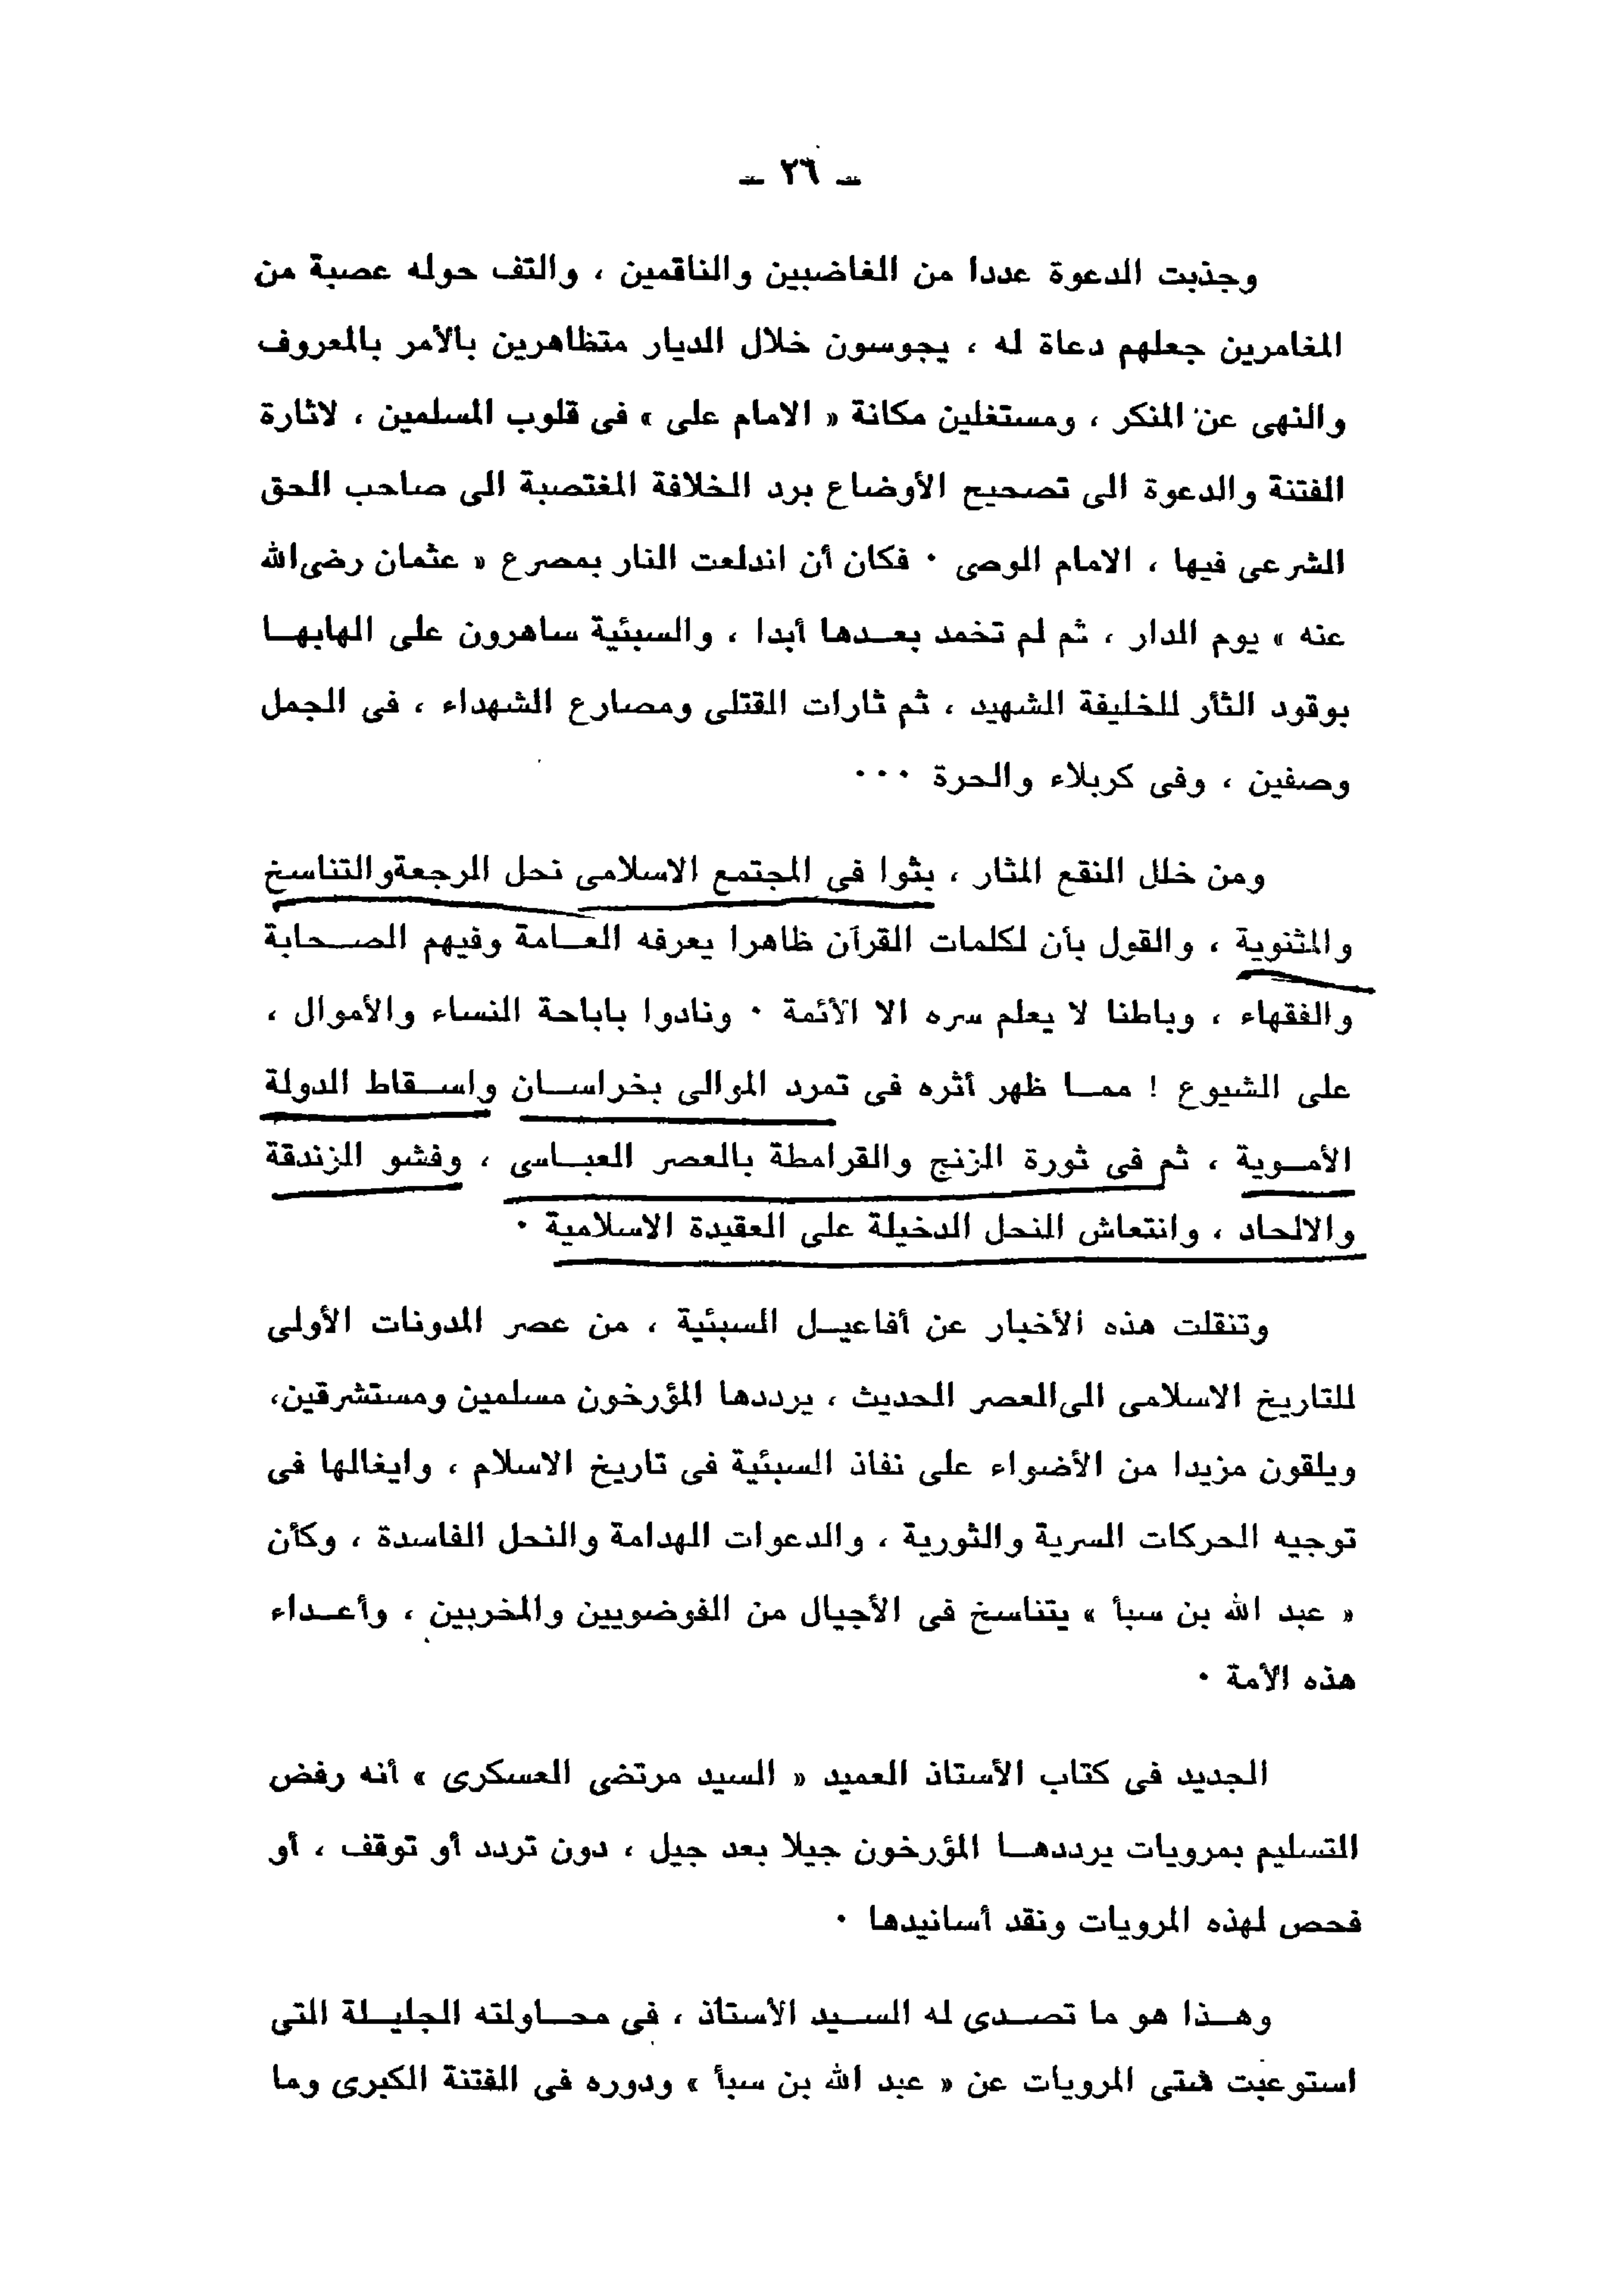 ــ ٢٦ ــ
وجذبت الدعوة عددا من الغاضبين والناقمين ، والتف حوله عصبة من
المغامرين جعلهم دعاة له ، يجوسون خلال الديار متظاهرين بالأمر بالمعروف
والنهى عن المنكر ، ومستغلين مكانة « الامام على » فى قلوب المسلمين ، لاثارة
الفتنة والدعوة الى تصحيح الأوضاع برد الخلافة المغتصبة الى صاحب الحق
الشرعى فيها ، الامام الوصى ٠ فكان أن اندلعت النار بمصرع « عثمان رضى الله
عنه » يوم الدار ، ثم لم تخمد بعــدها أبدا ، والسبئية ساهرون على الهابهــا
بوقود الثأر للخليفة الشهيد ، ثم ثارات القتلى ومصارع الشهداء ، فى الجمل
وصفين ، وفى كربلاء والحرة ٠٠٠
ومن خلل النقع المثار ، بثوا فى المجتمع الاسلامى نحل الرجعة والتناسخ
والمثنوية ، والقول بأن لكلمات القرآن ظاهرا يعرفه العــامة وفيهم الصــحابة
والفقهاء ، وباطنا لا يعلم سره الا الأئمة ٠ ونادوا باباحة النساء والأموال ،
على الشيوع ! ممــا ظهر أثره فى تمرد الموالى بخراســان واســقاط الدولة
الأمــوية ، ثم فى ثورة الزنج والقرامطة بالعصر العبــاسى ، وفشو الزندقة
والالحاد ، وانتعاش النحل الدخيلة على العقيدة الاسلامية ٠
وتنقلت هذه الأخبار عن أفاعيــل السبئية ، من عصر المدونات الأولى
للتاريخ الاسلامى الى العصر الحديث ، يرددها المؤرخون مسلمين ومستشرقين،
ويلقون مزيدا من الأضواء على نفاذ السبئية فى تاريخ الاسلام ، وايغالها فى
توجيه الحركات السرية والثورية ، والدعوات الهدامة والنحل الفاسدة ، وكأن
« عبد الله بن سبأ » يتناسخ فى الأجيال من الفوضويين والمخربين ، وأعــداء
هذه الأمة ٠
الجديد فى كتاب الأستاذ العميد « السيد مرتضى العسكرى » أنه رفض
التسليم بمرويات يرددهــا المؤرخون جيلا بعد جيل ، دون تردد أو توقف ، أو
فحص لهذه المرويات ونقد أسانيدها ٠
وهــذا هو ما تصــدى له الســيد الأستاذ ، فى محــاولته الجليــلة التى
استوعبت شتى المرويات عن « عبد الله بن سبأ » ودوره فى الفتنة الكبرى وما